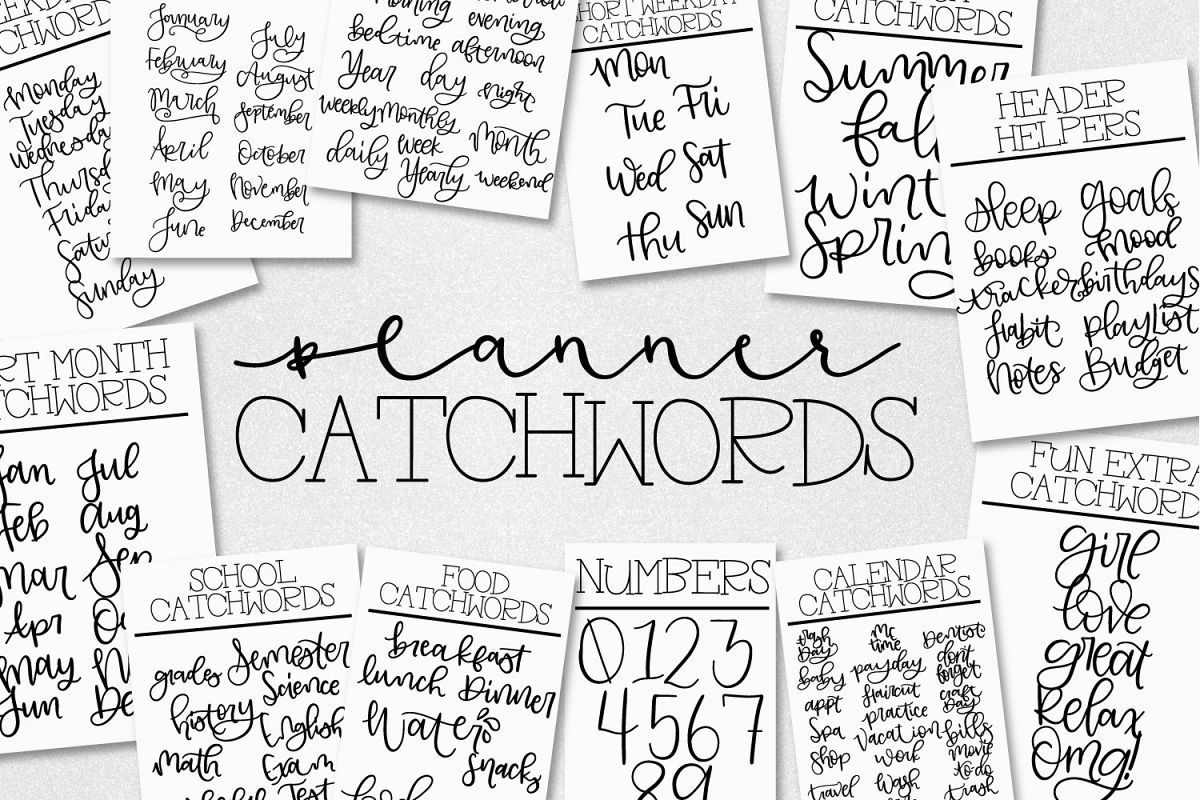 Monday
Tuesday
Wednesday
Friday
Sunday
January
February
March
April
May
June
July
August
September
October
November
December
evening
bedtime afternoon
Year day night
weekly Monthly
daily week Month
Yearly weekend
SHORT WEEKDAY
CATCHWORDS
Mon
Tue Fri
Wed Sat
Thu Sun
CATCHWORDS
Summer
fall
HEADER
HELPERS
sleep goals
books mood
tracker birthdays
habit playlist
Notes Budget
planner
CATCHWORDS
RT MONTH
TCHWORDS
Jan Jul
Feb Aug
Mar Sep
Apr
May
Jun
SCHOOL
CATCHWORDS
grades Semester
Science
history English
Math Exam
Test
FOOD
CATCHWORDS
breakfast
lunch Dinner
Water
Snacks
NUMBERS
0123
4567
89
CALENDAR
CATCHWORDS
Trash Day
Me time
Dentist
baby
payday
don't forget
appt
Haircut
craft Day
Spa
Practice
bills
Shop
Vacation
movie
Work
to-do
travel
Wash
trash
FUN EXTRA
CATCHWORD
girl
love
great
Relax
omg!